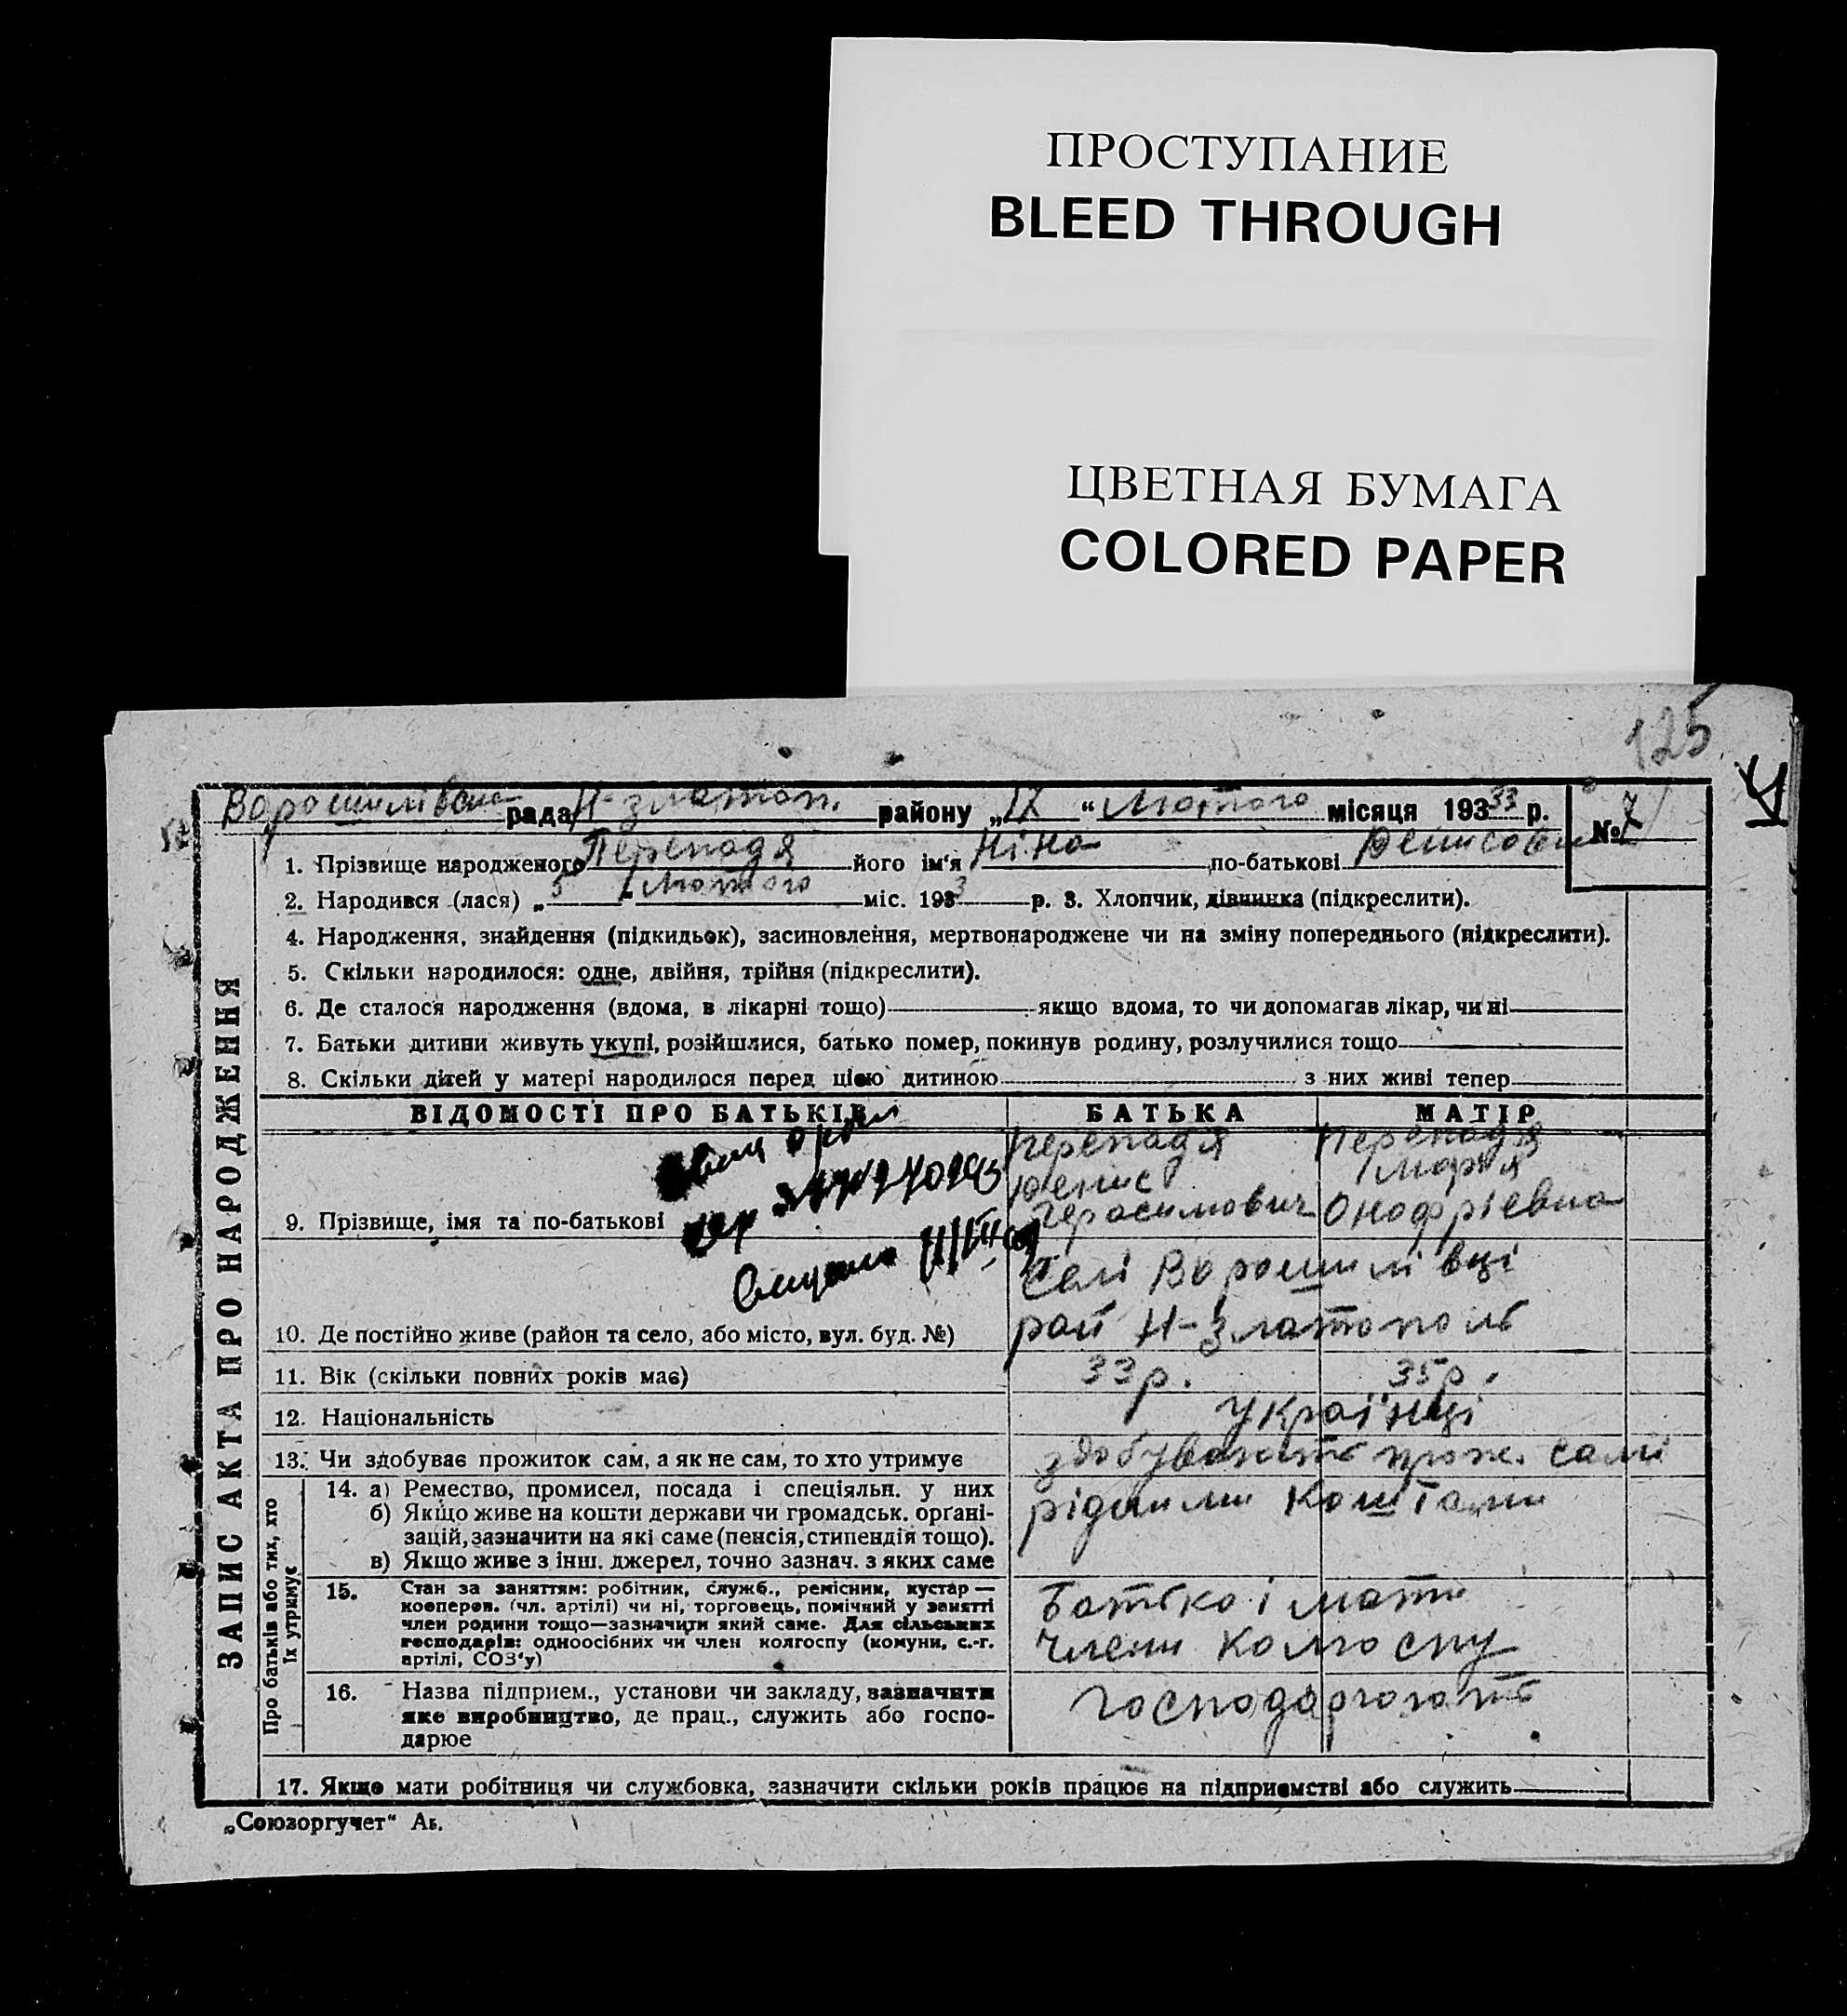 ПРОСТУПАНИЕ
BLEED THROUGH
ЦВЕТНАЯ БУМАГА
COLORED PAPER
125
Ворошилівська рада Н-златоп. району „17 “ Лютого місяця 193 33 р. № 7
1. Прізвище народженого Перепадя його ім‘я Ніна по-батькові Денисовна
2. Народився (лася) „ 5 “ Лютого міс. 193 3 р. 3. Хлопчик, дівчинка (підкреслити).
4. Народження, знайдення (підкидьок), засиновлення, мертвонароджене чи на зміну попереднього (підкреслити).
5. Скільки народилося: одне, двійня, трійня (підкреслити).
6. Де сталося народження (вдома, в лікарні тощо) якщо вдома, то чи допомагав лікар, чи ні
7. Батьки дитини живуть укупі, розійшлися, батько помер, покинув родину, розлучилися тощо
8. Скільки дітей у матері народилося перед цією дитиною з них живі тепер
ЗАПИС АКТА ПРО НАРОДЖЕННЯ
ВІДОМОСТІ ПРО БАТЬКІВ БАТЬКА МАТІР
9. Прізвище, імя та по-батькові
Перепадя Денис Герасимович
Перепадя Марія Онофріевна
10. Де постійно живе (район та село, або місто, вул. буд. №)
Селі Ворошилівці
рай Н-Златополь
11. Вік (скільки повних років має) 33 р. 35 р.
12. Національність Українці
13. Чи здобуває прожиток сам, а як не сам, то хто утримує здобувають прож. самі
Про батьків або тих, хто їх утримує
14. а) Ремество, промисел, посада і спеціяльн. у них
б) Якщо живе на кошти держави чи громадськ. орґані-
зацій, зазначити на які саме (пенсія, стипендія тощо).
в) Якщо живе з інш. джерел, точно зазнач. з яких саме
коштами
15. Стан за заняттям: робітник, служб., ремісник, кустар —
кооперов. (чл. артілі) чи ні, торговець, помічний у занятті
член родини тощо—зазначити який саме. Для сільських
господарів: одноосібних чи член колгоспу (комуни, с.-г.
артілі, СОЗ‘у)
Батько і мати
члени колгоспу
16. Назва підприєм., установи чи закладу, зазначити
яке виробництво, де прац., служить або госпо-
дарює
господарюють
17. Якщо мати робітниця чи службовка, зазначити скільки років працює на підприємстві або служить
„Союзоргучет“ Аг.